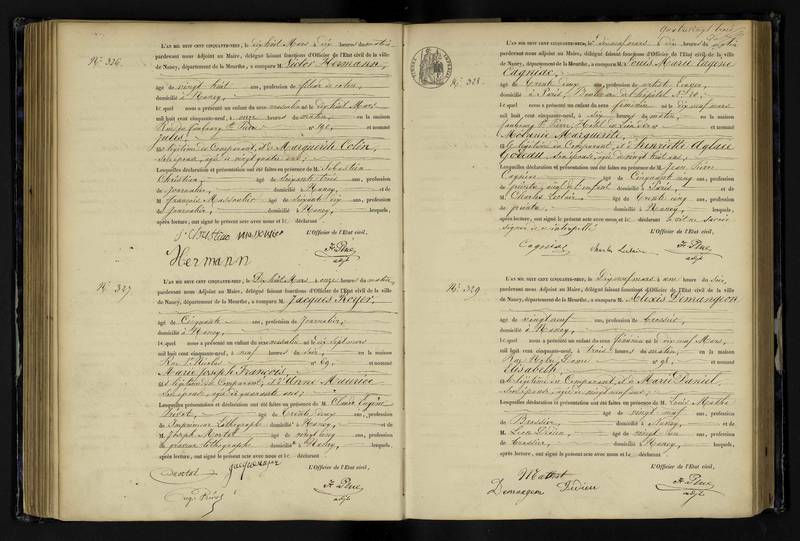 N°. 326.
L'AN MIL HUIT CENT CINQUANTE-NEUF, le dix huit Mars à dix heures du matin
pardevant nous Adjoint au Maire, délégué faisant fonctions d'Officier de l'Etat civil de la ville
de Nancy, département de la Meurthe, a comparu M. Victor Hermann,
âgé de vingt huit ans, profession de fileur de coton,
domicilié à Nancy,
lequel nous a présenté un enfant du sexe masculin né le dix huit Mars
mil huit cent cinquante-neuf, à onze heures du matin, en la maison
Rue du faubourg St Pierre n° et nommé
Jules
fils légitime du Comparant, et de Marguerite Colin,
son épouse, âgée de vingt quatre ans;
Lesquelles déclaration et présentation ont été faites en présence de M. Sébastien
Christian, âgé de soixante trois ans, profession
de Journalier, domicilié à Nancy, et de
M. François Massoutier âgé de soixante dix ans, profession
de Journalier, domicilié à Nancy, lesquels,
après lecture, ont signé le présent acte avec nous et le déclarant
L'Officier de l'Etat civil,
Hermann
adjt
N°. 327.
L'AN MIL HUIT CENT CINQUANTE-NEUF, le Dix huit Mars à onze heures du matin,
pardevant nous Adjoint au Maire, délégué faisant fonctions d'Officier de l'Etat civil de la ville
de Nancy, département de la Meurthe, a comparu M. Jacques Royer,
âgé de Cinquante ans, profession de Journalier,
domicilié à Nancy,
lequel nous a présenté un enfant du sexe masculin né le dix sept mars
mil huit cent cinquante-neuf, à neuf heures du soir, en la maison
Rue St Nicolas n° 69, et nommé
Marie Joseph François,
fils légitime du Comparant, et d'Anne Maurice
son épouse, âgée de quarante ans;
Lesquelles présentation et déclaration ont été faites en présence de M. Eugène
âgé de trente deux ans, profession
de Imprimeur Lithographe domicilié à Nancy, et de
M. Joseph âgé de vingt cinq ans, profession
de graveur Lithographe domicilié à Nancy, lesquels,
après lecture, ont signé le présent acte avec nous et le déclarant
L'Officier de l'Etat civil,
adjt
quatrevingt trois
N°. 328.
L'AN MIL HUIT CENT CINQUANTE-NEUF, le dix neuf mars à dix heures du matin
pardevant nous Adjoint au Maire, délégué faisant fonctions d'Officier de l'Etat civil de la ville
de Nancy, département de la Meurthe, a comparu M. Louis Marie Eugène
Cagniac
âgé de trente deux ans, profession de artiste
domicilié à Paris, Boulevard de l'hôpital N° 20,
lequel nous a présenté un enfant du sexe féminin né le dix neuf mars
mil huit cent cinquante-neuf, à six heures du matin, en la maison
faubourg St Pierre, et nommé
Mélanie Marguerite
fille légitime du Comparant, et de Henriette Aglaée
son épouse, âgée de vingt huit ans,
Lesquelles déclaration et présentation ont été faites en présence de M. Jean Pierre
âgé de Cinquante cinq ans, profession
de peintre, domicilié à Paris, et de
M. Charles Leclaire âgé de trente cinq ans, profession
de peintre domicilié à Nancy, lesquels,
après lecture, ont signé le présent acte avec nous et le déclarant
L'Officier de l'Etat civil,
Charles Leclaire
adjt
N°. 329.
L'AN MIL HUIT CENT CINQUANTE-NEUF, le Dix neuf mars à une heure du soir,
pardevant nous Adjoint au Maire, délégué faisant fonctions d'Officier de l'Etat civil de la ville
de Nancy, département de la Meurthe, a comparu M. Alexis Demangeon
âgé de vingt neuf ans, profession de Brossier,
domicilié à Nancy,
lequel nous a présenté un enfant du sexe féminin né le dix neuf Mars,
mil huit cent cinquante-neuf, à trois heures du matin, en la maison
Rue Notre Dame n° 98, et nommé
Elisabeth,
fille légitime du Comparant, et de Marie Daniel,
son épouse, âgée de vingt neuf ans;
Lesquelles déclaration et présentation ont été faites en présence de M. Louis
âgé de vingt neuf ans, profession
de Brossier, domicilié à Nancy, et de
M. Léon Didier, âgé de vingt un ans, profession
de Brossier, domicilié à Nancy, lesquels,
après lecture, ont signé le présent acte avec nous et le déclarant
L'Officier de l'Etat civil,
Demangeon
adjt